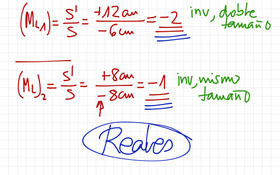 (M_{L1}) = S'/S = +12cm/-6cm = -2 inv, doble tamaño
(M_L)_2 = S'/S = +8cm/-8cm = -1 inv, mismo tamaño
Reales